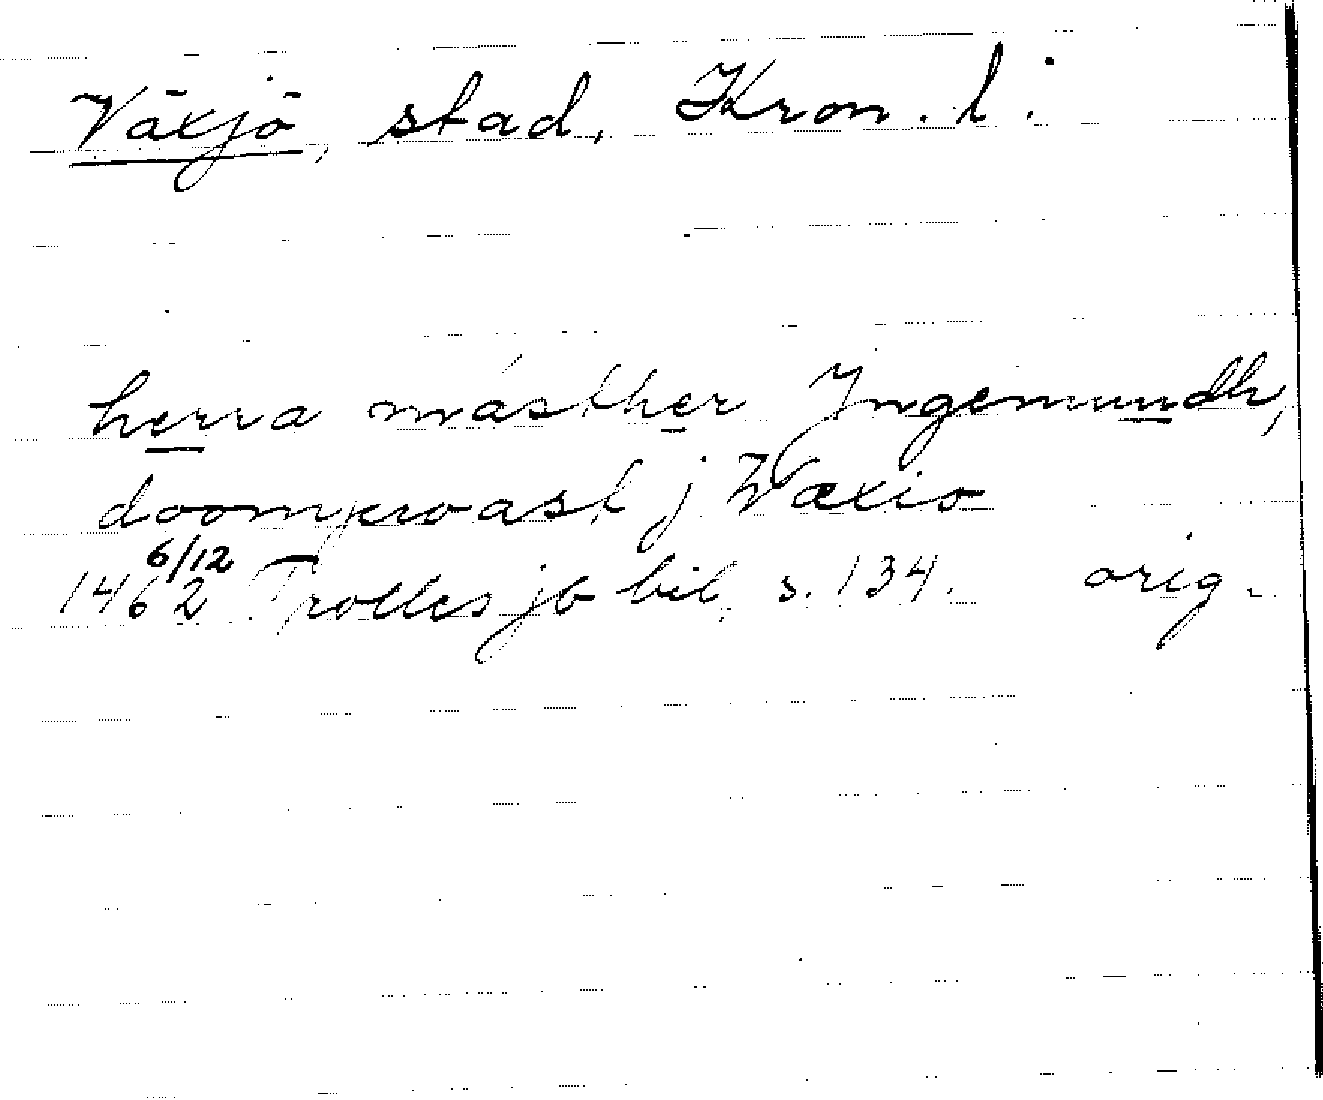 Växjö, stad, Kron. l.
herra másther Jngemundh,
doomproast j Wæxio
6/12
1462 Trolles jb bil. s. 134. orig.